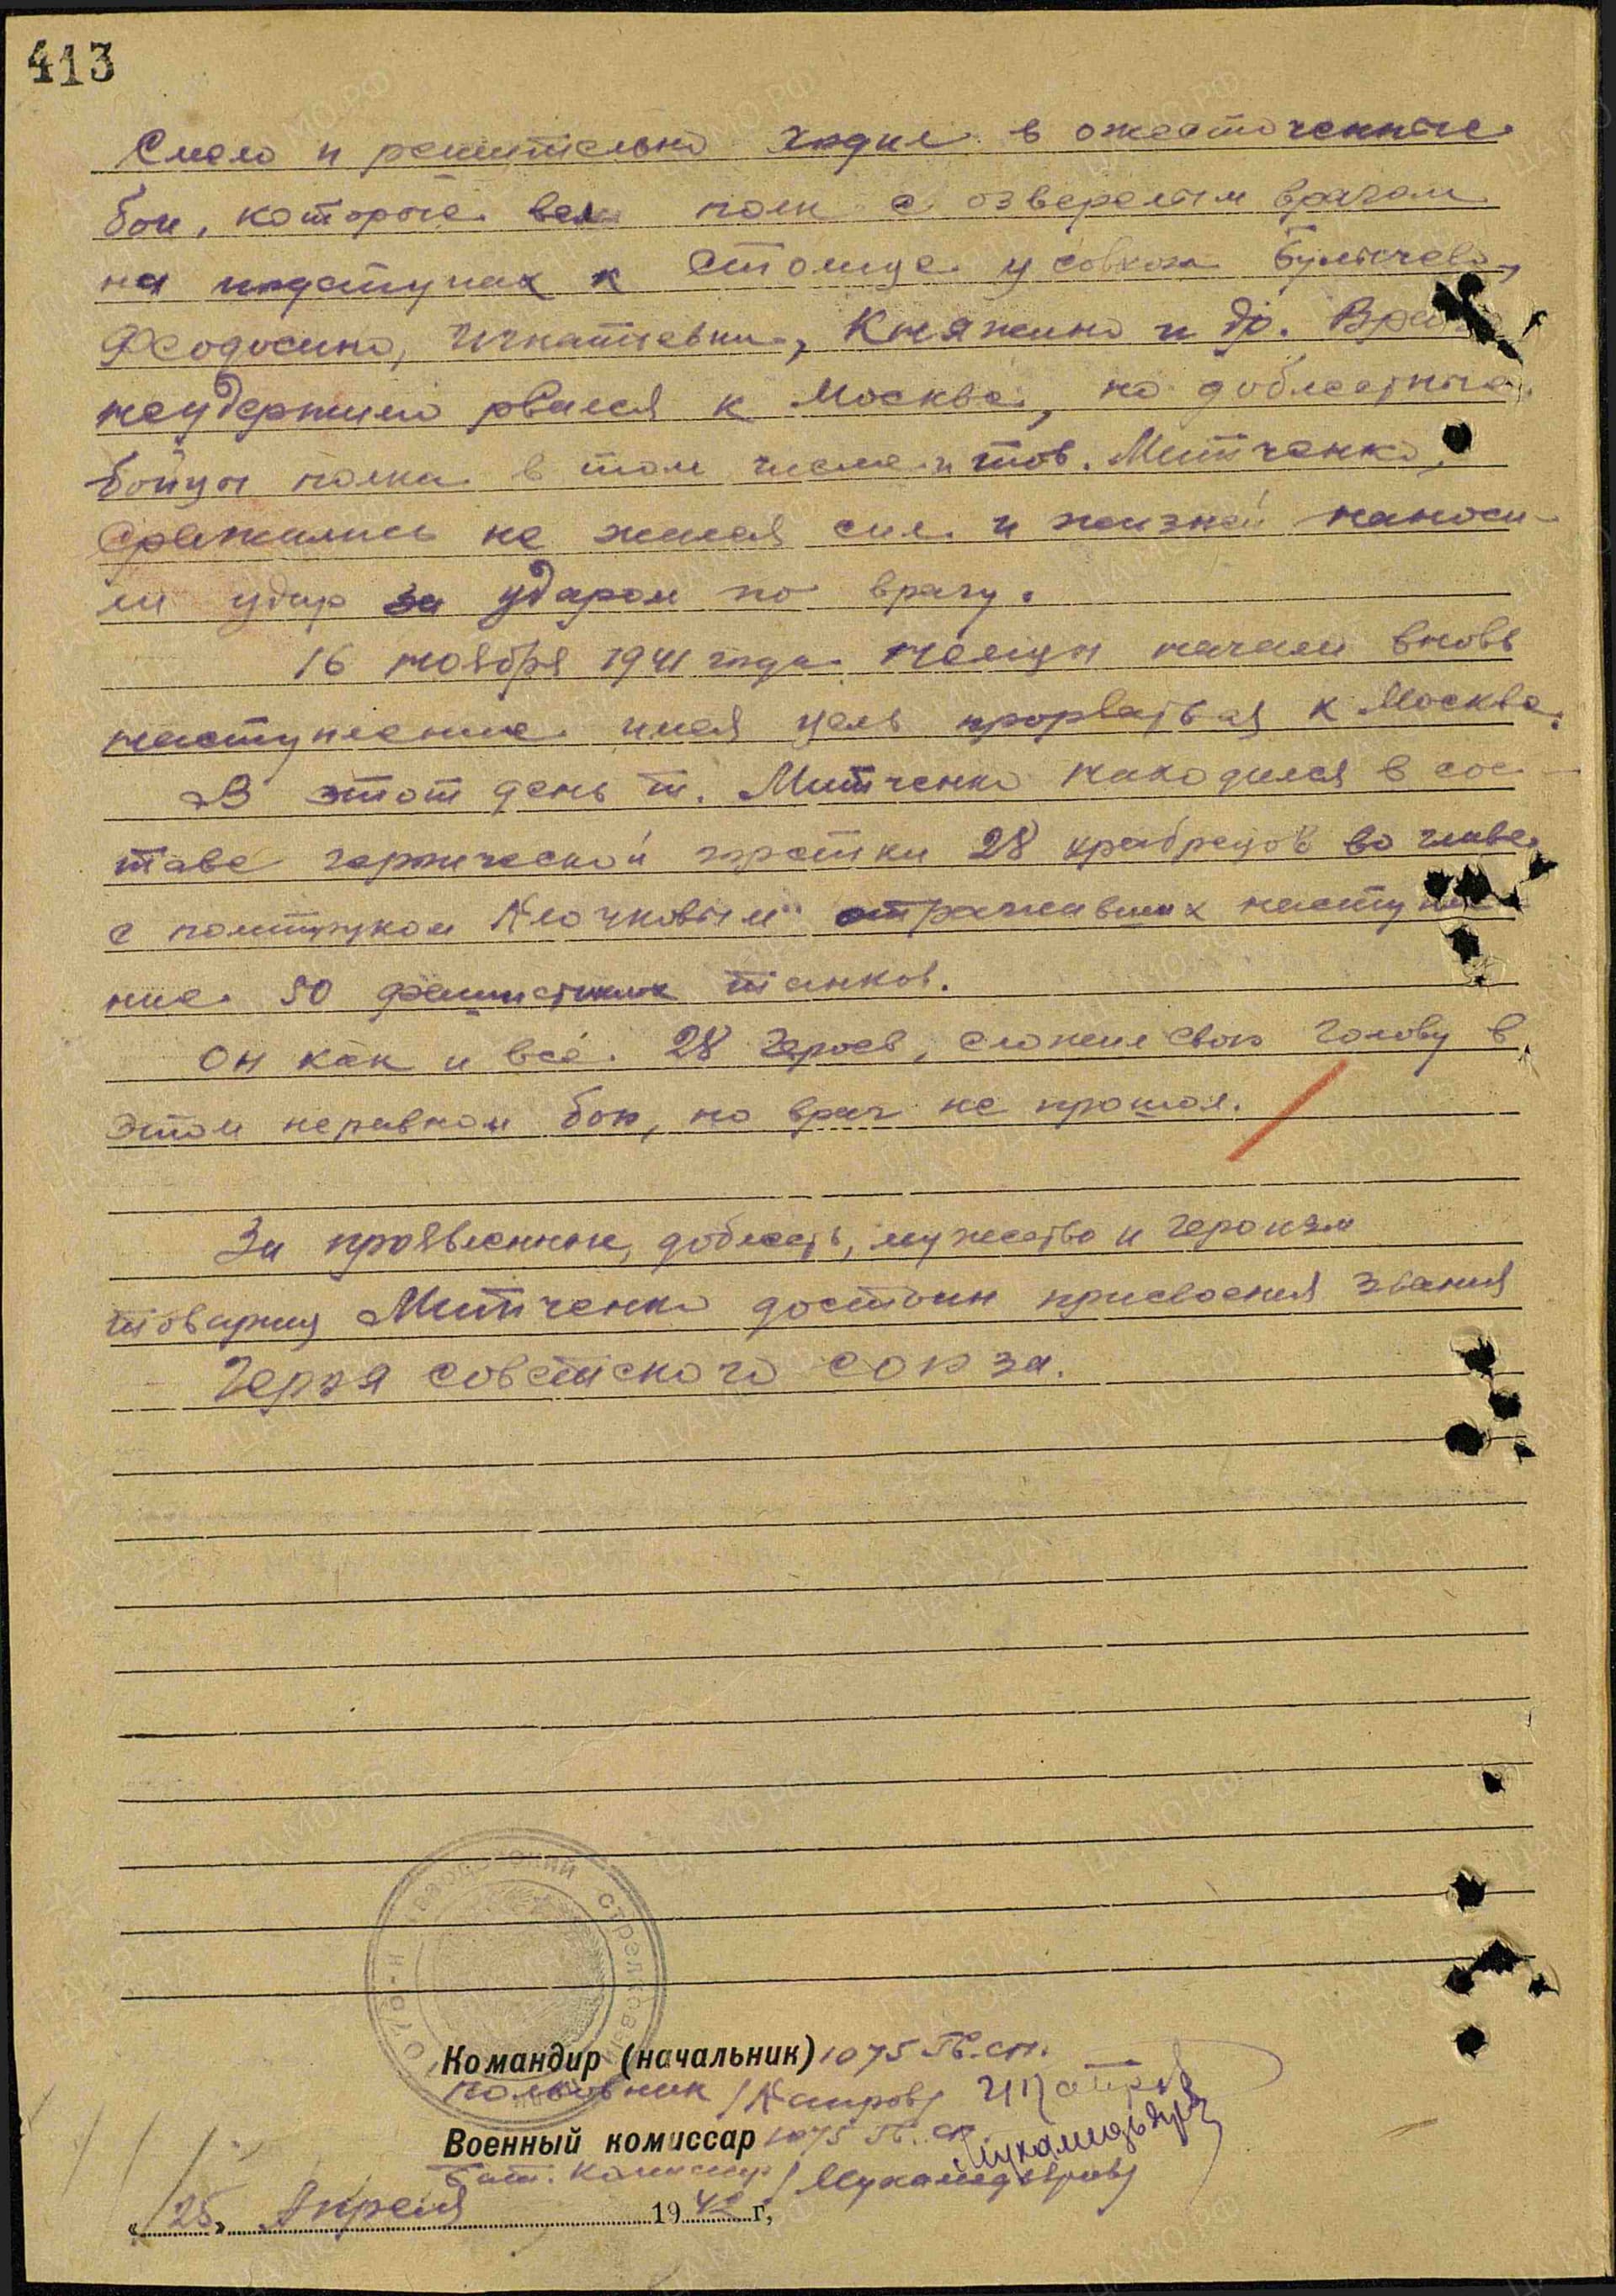 413
Смело и решительно ходил в ожесточенные
бои, которые вел полк с озверелым врагом
на подступах к столице у совхоза Булычево,
Феодосино, Игнатьевки, Княжино и др. Враг
неудержимо рвался к Москве, но доблестные
бойцы полка в том числе и тов. Митченко,
сражались не жалея сил и жизней наноси-
ли удар за ударом по врагу.
16 ноября 1941 года немцы начали вновь
наступление имея цель прорваться к Москве.
В этот день т. Митченко находился в сос-
таве героической горстки 28 храбрецов во главе
с политруком Клочковым отражавших наступле-
ние 50 фашистких танков.
Он как и все 28 героев, сложил свою голову в
этом неравном бою, но враг не прошол.
За проявленные, доблесть, мужество и героизм
товарищ Митченко достоин присвоения звания
Героя советского союза.
1075-й гвардейский стрелковый
Командир (начальник) 1075 Гв. сп.
полковник /Капров/
Военный комиссар 1075 Гв. сп.
Бат. комиссар /Мухамедьяров/ Мухамедьяров
«25» Апреля 1942 г,